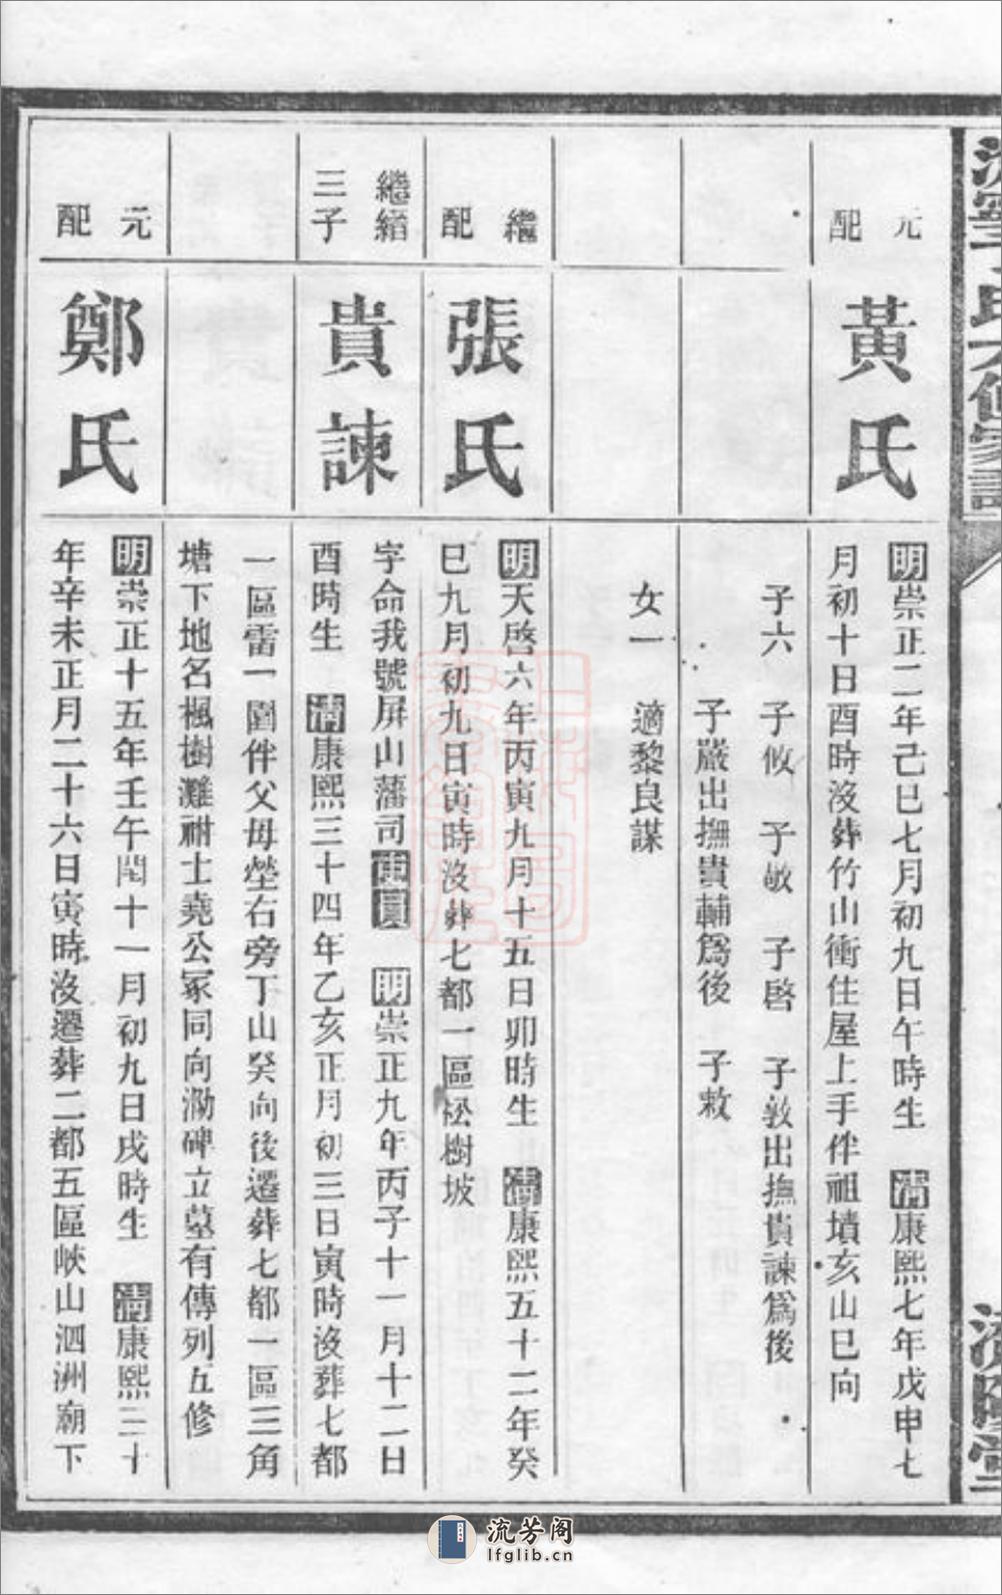 元配
黃氏
明崇正二年己巳七月初九日午時生　清康熙七年戊申七
月初十日酉時沒葬竹山衝住屋上手伴祖墳亥山巳向
子六　子攸　子敬　子啓　子敦出撫貴諫爲後
子嚴出撫貴輔爲後　子敕
女一　適黎良謀
繼配
張氏
明天啓六年丙寅九月十五日卯時生　清康熙五十二年癸
巳九月初九日寅時沒葬七都一區松樹坡
繼縉
三子
貴諫
字命我號屏山藩司吏員　明崇正九年丙子十一月十二日
酉時生　清康熙三十四年乙亥正月初三日寅時沒葬七都
一區雷一圖伴父母塋右旁丁山癸向後遷葬七都一區三角
塘下地名楓樹灘祔士堯公冢同向泐碑立墓有傳列五修
元配
鄭氏
明崇正十五年壬午閏十一月初九日戌時生　清康熙三十
年辛未正月二十六日寅時沒遷葬二都五區峽山泗洲廟下
流芳阁
lfglib.cn